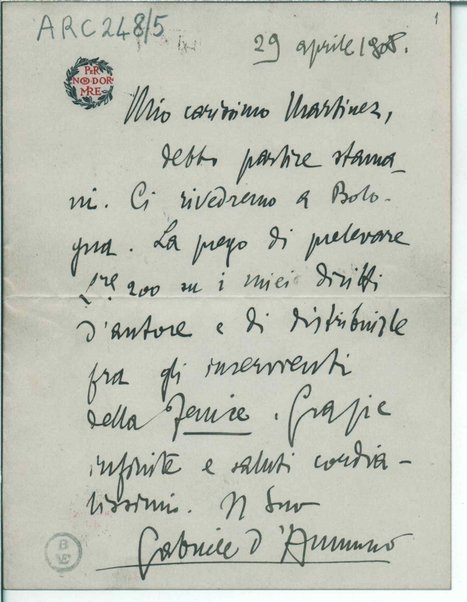 ARC 248/5
1
29 aprile 1908.
PER
NON DOR
MIRE
Mio carissimo Martinez,
debbo partire stama-
ni. Ci rivedremo a Bolo-
gna. La prego di prelevare
Lre 200 su i miei diritti
d'autore e di distribuirle
fra gli inservienti
della Fenice. Grazie
infinite e saluti cordia-
lissimi. Il Suo
Gabriele d'Annunzio
B
VE